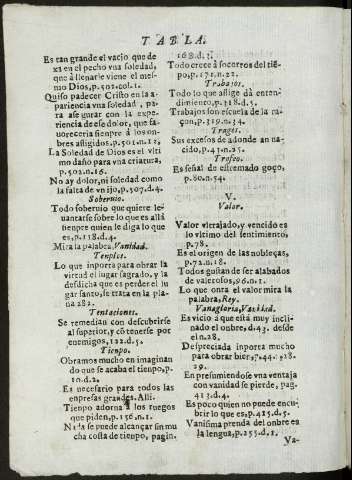 TABLA.
Es tan grande el vacio que de
xa en el pecho vna soledad,
que à llenarle viene el mes-
mo Dios, p.502.col.1.
Quiso padecer Cristo en la a-
pariencia vna soledad, pa
ra asegurar con la expe-
riencia de ese dolor, que fa-
uoreceria siempre à los on-
bres afligidos, p.501.n.12.
La Soledad de Dios es el vlti
mo daño para vna criatura,
p.502.n.16.
No ay dolor, ni soledad como
la falta de vn ijo, p.507.d.4.
Soberuio.
Todo soberuio que quiere le-
uantarse sobre lo que es allà
sienpre quien le diga lo que
es, p.118.d.4.
Mira la palabra, Vanidad.
Tenplos.
Lo que inporta para obrar la
virtud el lugar sagrado, y la
desdicha que es perder el lu
gar santo, se trata en la pla-
na 282.
Tentaciones.
Se remedian con descubrirse
al superior, y cō tenerse por
enemigos, 122.d.5.
Tienpo.
Obramos mucho en imaginan
do que se acaba el tienpo, p.
10.d.2.
Es necesario para todos las
enpresas grandes. Alli.
Tienpo adorna à los ruegos
que piden, p.156.n.1.
Nada se puede alcançar sin mu
cha costa de tienpo, pagin.
168.d.3.
Todo crece à socorros del tiē-
po, p.171.n.22.
Trabajos.
Todo lo que aflige dà entendi-
dimiento, p.318.d.5.
Trabajos son escuela de la ra-
çon, p.319.n.34.
Trages.
Sus excesos de adonde an na-
cido, p.41.n.25.
Trofeo.
Es señal de estremado goço,
p.80.n.54.
V.
Valor.
Valor vltrajado, y vencido es
lo vltimo del sentimiento,
p.78.
Es el origen de las nobleças,
p.72.n.18.
Todos gustan de ser alabados
de valerosos, 96.n.1.
Lo que onra el valor mira la
palabra, Rey.
Vanagloria,
Es vicio à que està muy incli
nado el onbre, d.43. desde
el n.28.
Despreciada inporta mucho
para obrar bien,
29.
En presumiendose vna ventaja
con vanidad se pierde, pag.
413.d.4.
Es poco quien no puede encu-
brir lo que es, p.425.d.5.
Vanisima prenda del onbre es
la lengua, p.253.d.1.
Va-